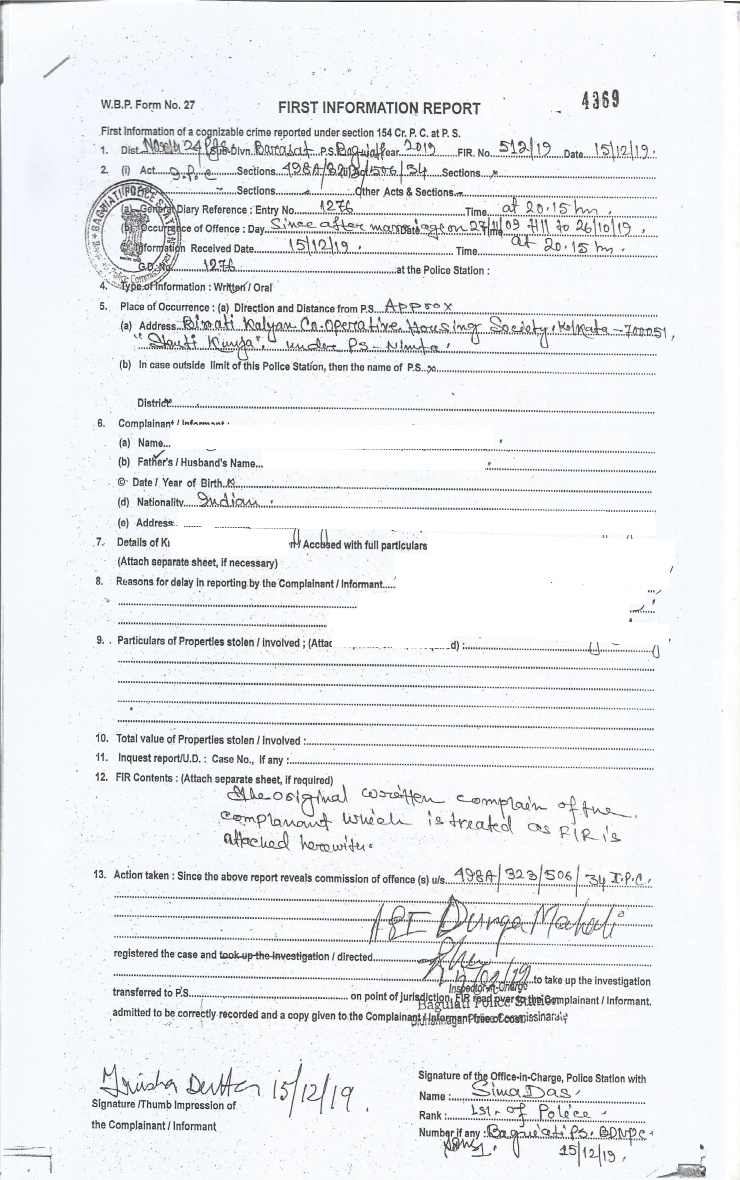 4369
W.B.P. Form No. 27
FIRST INFORMATION REPORT
First Information of a cognizable crime reported under section 154 Cr. P. C. at P. S.
1. Dist. North 24 Pgs Sub-Divn. Barasat P.S. Baguiati Year 2019 FIR. No. 512/19 Date 15/12/19.
2. (i) Act I.P.C Sections 498A/323/506/34 Sections x
Sections Other Acts & Sections
(a) General Diary Reference : Entry No. 1276 Time at 20.15 hrs.
(b) Occurrence of Offence : Day Since after marriage on 27/11/09 till to 26/10/19.
Information Received Date 15/12/19. Time at 20.15 hrs.
G.D. No. 1276 at the Police Station :
4. Type of Information : Written / Oral
5. Place of Occurrence : (a) Direction and Distance from P.S. Approx
(a) Address Birati Kalyan Co-Operative Housing Society, Kolkata-700051,
under PS-Nimta.
(b) In case outside limit of this Police Station, then the name of P.S. x
District
6. Complainant / Informant :
(a) Name...
(b) Father's / Husband's Name...
© Date / Year of Birth
(d) Nationality Indian.
(e) Address
7. Details of Accused with full particulars
(Attach separate sheet, if necessary)
8. Reasons for delay in reporting by the Complainant / Informant....
9. Particulars of Properties stolen / involved ; (Attac d) :
10. Total value of Properties stolen / involved :
11. Inquest report/U.D. : Case No., if any :
12. FIR Contents : (Attach separate sheet, if required)
The original written complain of the
complanant which is treated as FIR is
attached herewith.
13. Action taken : Since the above report reveals commission of offence (s) u/s. 498A/323/506/34 I.P.C.
ASI Durga
registered the case and took up the investigation / directed
to take up the investigation
Inspector-in-Charge
transferred to P.S. on point of jurisdiction, FIR read over to the Complainant / Informant.
Baguiati Police Station
admitted to be correctly recorded and a copy given to the Complainant / Informant free of cost.
15/12/19.
Signature /Thumb Impression of
the Complainant / Informant
Signature of the Office-in-Charge, Police Station with
Name : Sima Das
Rank : of Police.
Number if any : Baguiati P.S. BDNPC.
15/12/19.